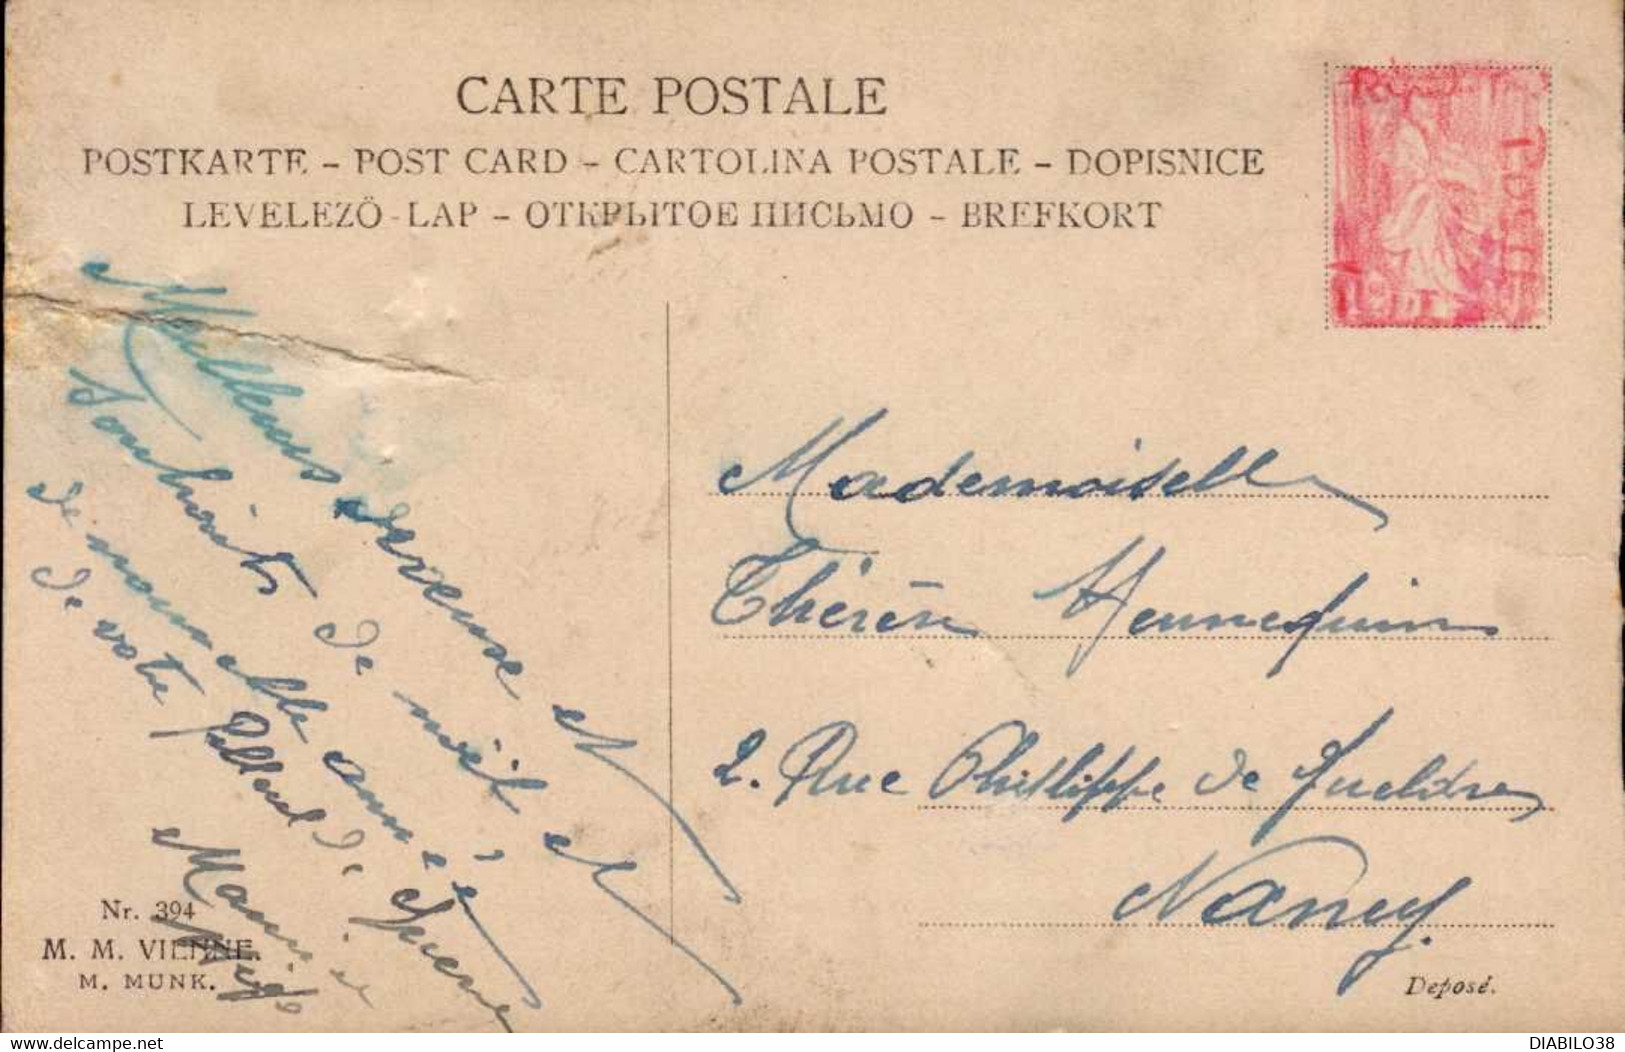 CARTE POSTALE
POSTKARTE – POST CARD – CARTOLINA POSTALE – DOPISNICE
LEVELEZÖ-LAP – ОТКРЫТОЕ ПИСЬМО – BREFKORT
Meilleurs
Souhaits de noël
de nouvelle année
de votre filleul de Guerre
Maurice
Mademoiselle
Thérèse Hennequin
2. Rue Phillippe de Gueldres
Nancy.
Nr. 394
M. M. VIENNE.
M. MUNK.
Deposé.
delcampe.net
DIABILO38